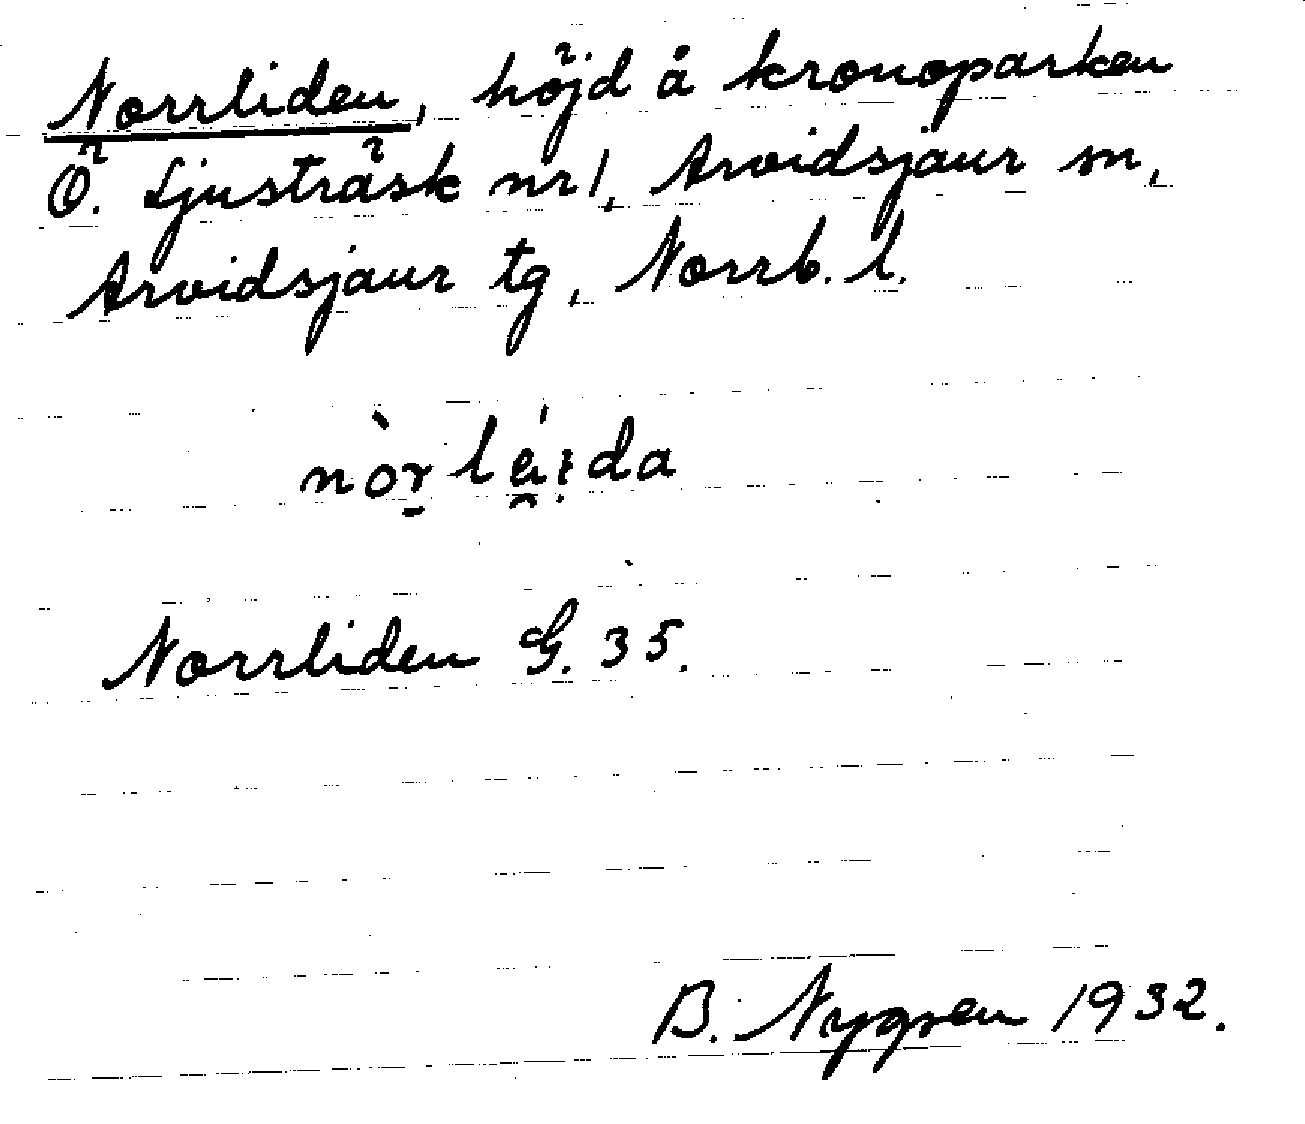 Norrliden, höjd å kronoparken
Ö. Ljusträsk nr 1, Arvidsjaur sn,
Arvidsjaur tg, Norrb. l.
nòr̠ lé̯ı̣da
Norrliden G. 35.
B. Nygren 1932.